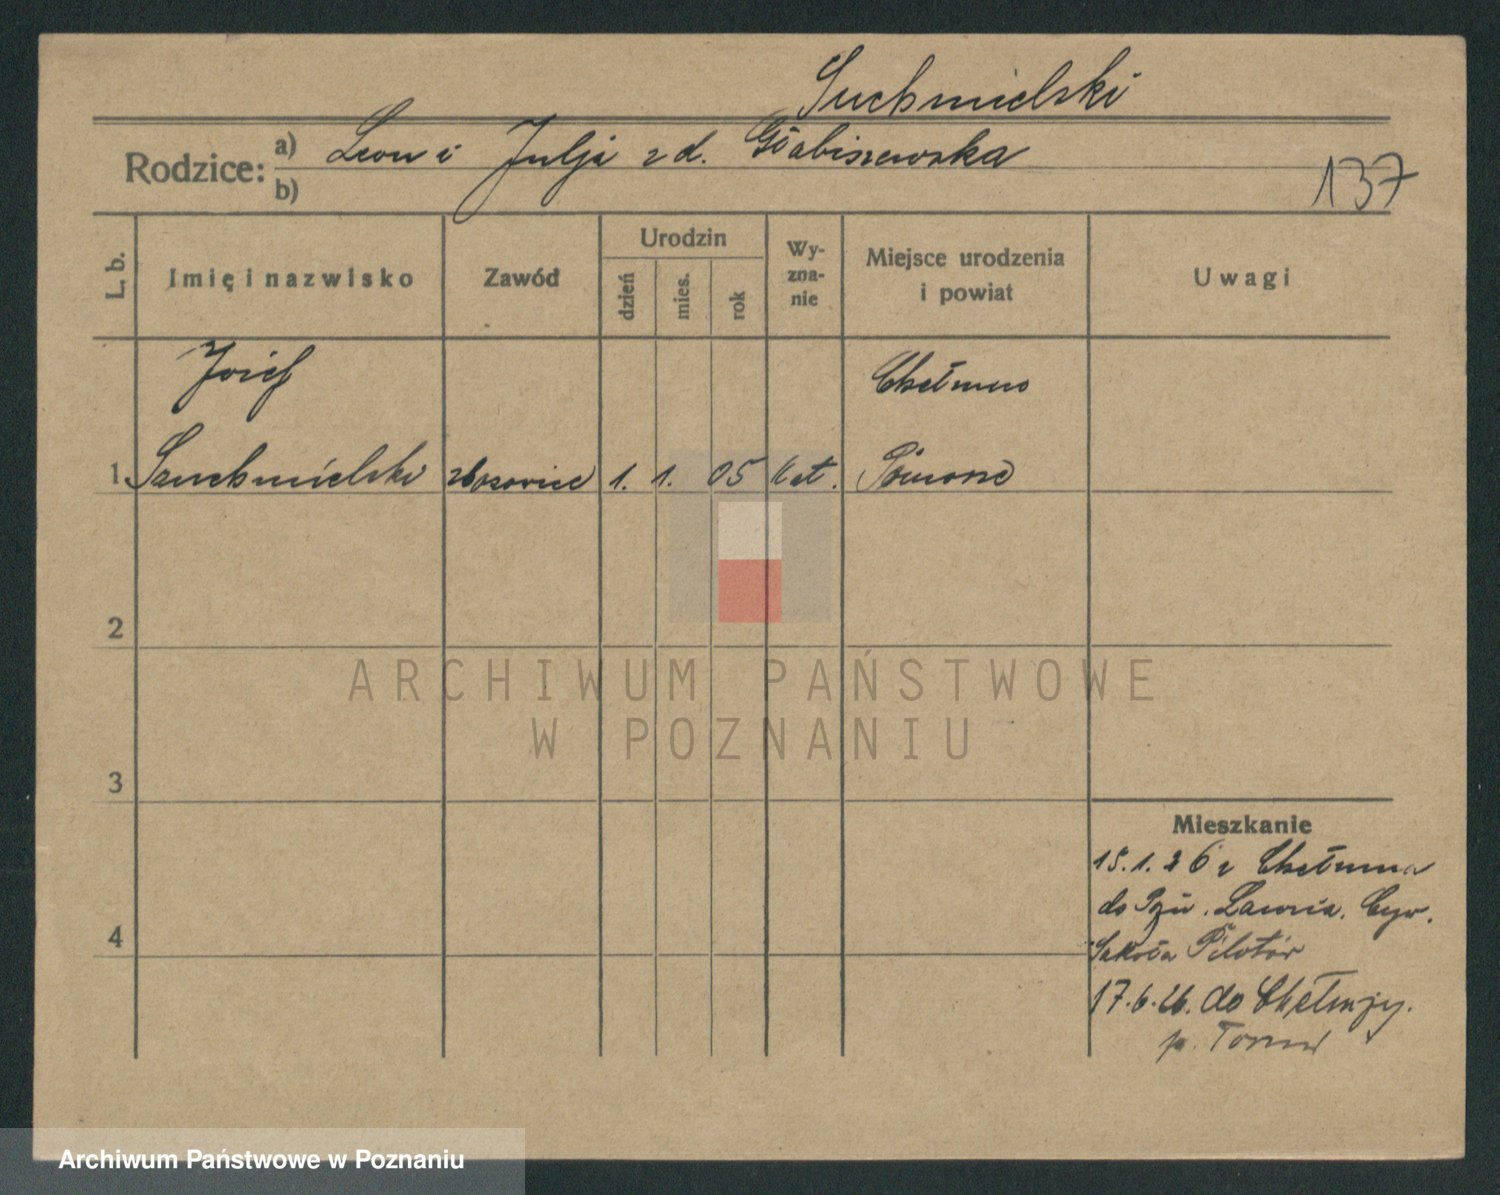 Suchmielski
Rodzice: a) Leon i Julja z d. Grabiszewska
b)
137
L. b. Imię i nazwisko Zawód Urodzin dzień mies. rok Wy-zna-nie Miejsce urodzenia i powiat Uwagi
Józef Chełmno
1. Suchmielski 1. 1. 05 kat. Pomorze
2
3
Mieszkanie
15.1.26 z Chełmna
do Cyw.
4
Szkoła Pilotów
17.6.26. do Chełmży.
p. Toruń
ARCHIWUM PAŃSTWOWE
W POZNANIU
Archiwum Państwowe w Poznaniu